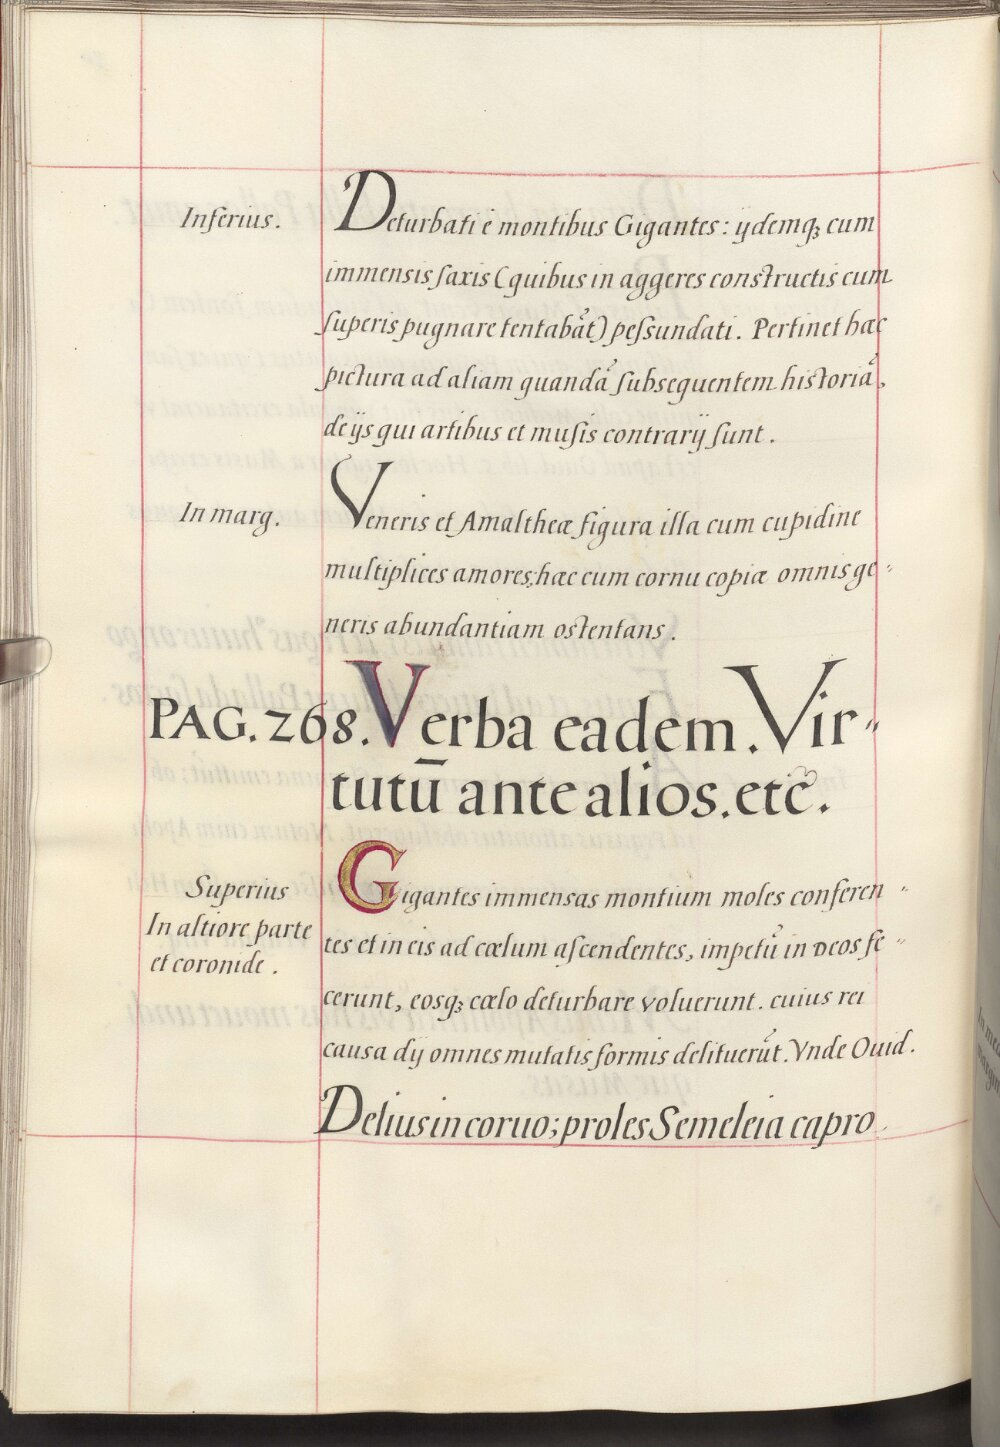 Inferius. Deturbati è montibus Gigantes: ijdemq₃ cum
immensis ſaxis (quibus in aggeres constructis cum
ſuperis pugnare tentabāt) peſsundati. Pertinet hæc
pictura ad aliam quandā ſubsequentem historiā,
de ijs qui artibus et muſis contrarij ſunt.
In marg. Veneris et Amaltheæ figura illa cum cupidine
multiplices amores; hæc cum cornu copiæ omnis ge-
neris abundantiam ostentans.
PAG. 268. Verba eadem. Vir-
tutū ante alios. etc̃.
Superius
In altiore parte
et coronide.
Gigantes immensas montium moles conferen-
tes et in eis ad cœlum aſcendentes, impetū in Deos fe-
cerunt, eosq₃ cœlo deturbare voluerunt. cuius rei
causa dij omnes mutatis formis delituerūt. Vnde Ouid.
Delius in coruo; proles Semeleia capro